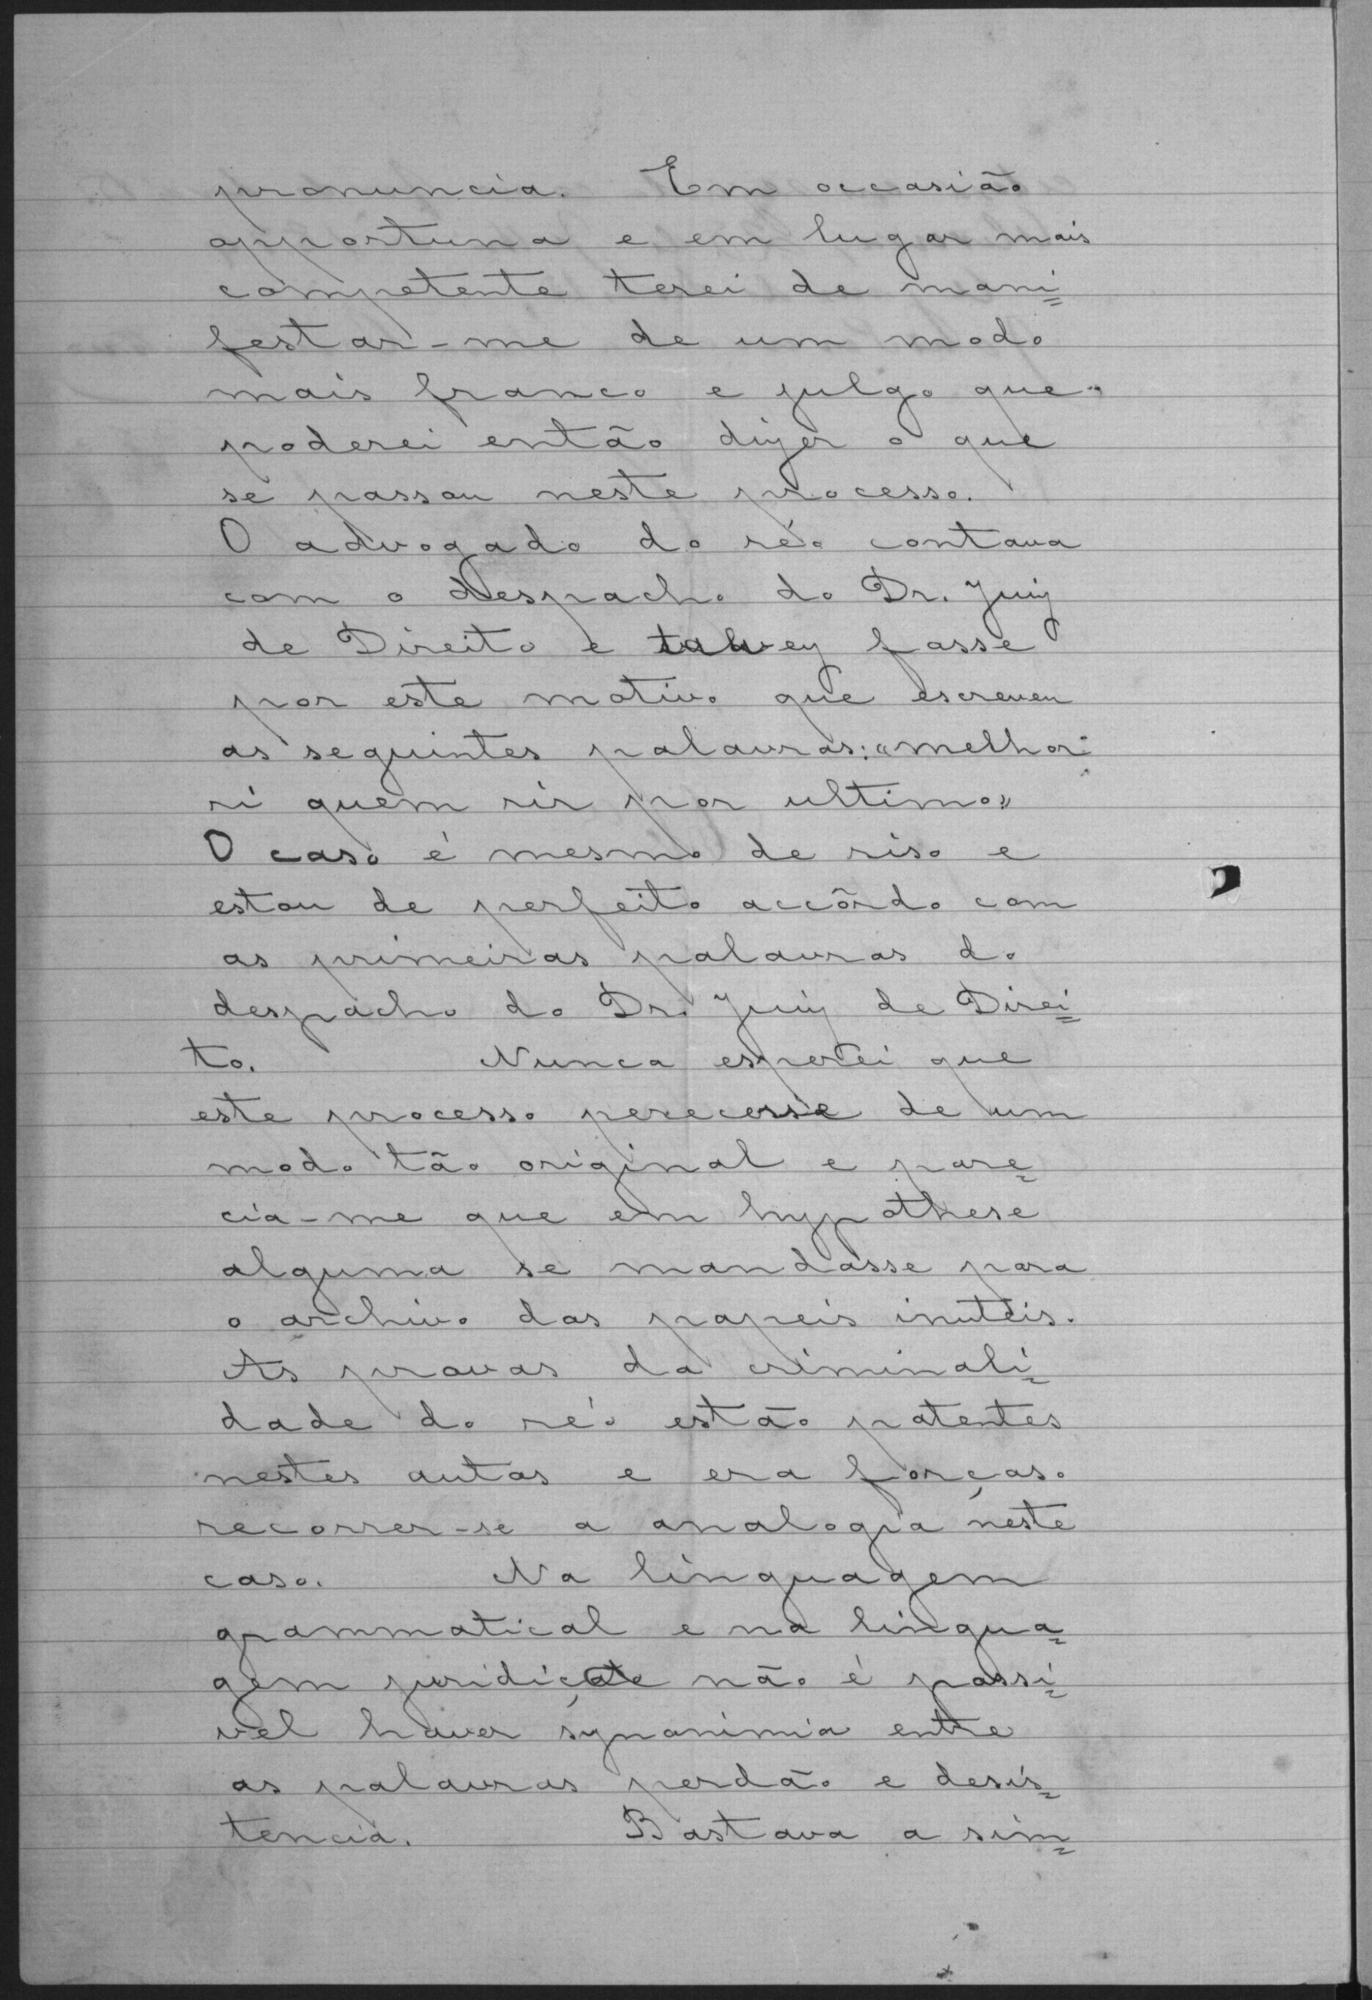 pronuncia. Em occasião
opportuna e em lugar mais
competente terei de mani=
festar-me de um modo
mais franco e julgo que
poderei então dizer o que
se passou neste processo.
O advogado do réo contava
com o despacho do Dr. Juiz
de Direito e talvez fosse
por este motivo que escreveu
as seguintes palavras: «melhor
ri quem rir por ultimo»
O caso é mesmo de riso e
estou de perfeito accôrdo com
as primeiras palavras do
despacho do Dr. Juiz de Direi=
to. Nunca esperei que
este processo perecesse de um
modo tão original e pare=
cia-me que em hypothese
alguma se mandasse para
o archivo dos papeis inuteis.
As provas da criminali=
dade do réo estão patentes
nestes autos e era forçoso
recorrer-se a analogia neste
caso. Na linguagem
grammatical e na lingua=
gem juridica não é possi=
vel haver synonimia entre
as palavras perdão e desis=
tencia. Bastava a sim=